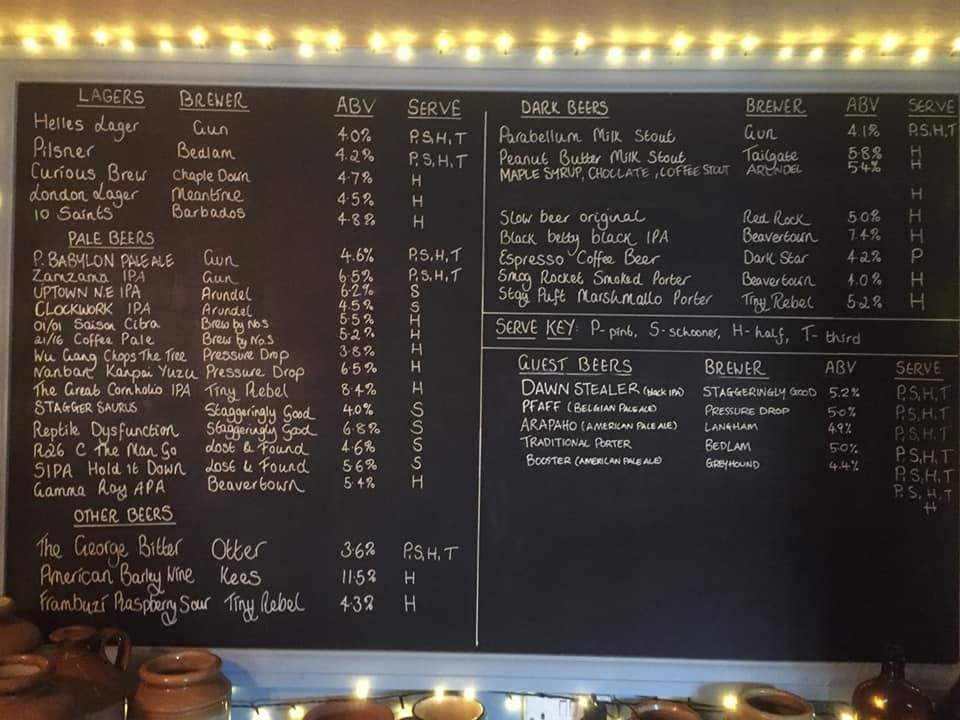 LAGERS BREWER ABV SERVE
Helles Lager Gun 4.0% P,S,H,T
Pilsner Bedlam 4.2% P,S,H,T
Curious Brew Chaple Down 4.7% H
London Lager Meantime 4.5% H
10 Saints Barbados 4.8% H
PALE BEERS
P. BABYLON PALE ALE Gun 4.6% P,S,H,T
Zamzama IPA Gun 6.5% P,S,H,T
UPTOWN N.E IPA Arundel 6.2% S
CLOCKWORK IPA Arundel 4.5% S
01/01 Saison Citra Brew by No.s 5.5% H
21/16 Coffee Pale Brew by No.S 5.2% H
Wu Gang Chops The Tree Pressure Drop 3.8% H
Nanban Kanpai Yuzu Pressure Drop 6.5% H
The Great Cornholio IPA Tiny Rebel 8.4% H
STAGGER SAURUS Staggeringly Good 4.0% S
Reptile Dysfunction Staggeringly Good 6.8% S
R26 C The Man Go Lost & Found 4.6% S
SIPA Hold it Down Lost & Found 5.6% S
Gamma Ray APA Beavertown 5.4% H
OTHER BEERS
The George Bitter Otter 3.6% P,S,H,T
American Barley Wine Kees 11.5% H
Frambuzi Raspberry Sour Tiny Rebel 4.3% H
DARK BEERS BREWER ABV SERVE
Parabellum Milk Stout Gun 4.1% P,S,H,T
Peanut Butter Milk Stout Tailgate 5.8% H
MAPLE SYRUP, CHOLLATE, COFFEE STOUT ARUNDEL 5.4% H
H
Slow beer original Red Rock 5.0% H
Black betty black IPA Beavertown 7.4% H
Espresso Coffee Beer Dark Star 4.2% P
Smog Rocket Smoked Porter Beavertown 4.0% H
Stay Puft Marshmallo Porter Tiny Rebel 5.2% H
SERVE KEY: P-pint, S-schooner, H-half, T-third
GUEST BEERS BREWER ABV SERVE
DAWN STEALER (black IPA) STAGGERINGLY GOOD 5.2% P,S,H,T
PFAFF (BELGIAN PALE ALE) PRESSURE DROP 5.0% P,S,H,T
ARAPAHO (AMERICAN PALE ALE) LANGHAM 4.9% P,S,H,T
TRADITIONAL PORTER BEDLAM 5.0% P,S,H,T
BOOSTER (AMERICAN PALE ALE) GREYHOUND 4.4% P,S,H,T
P,S,H,T
H